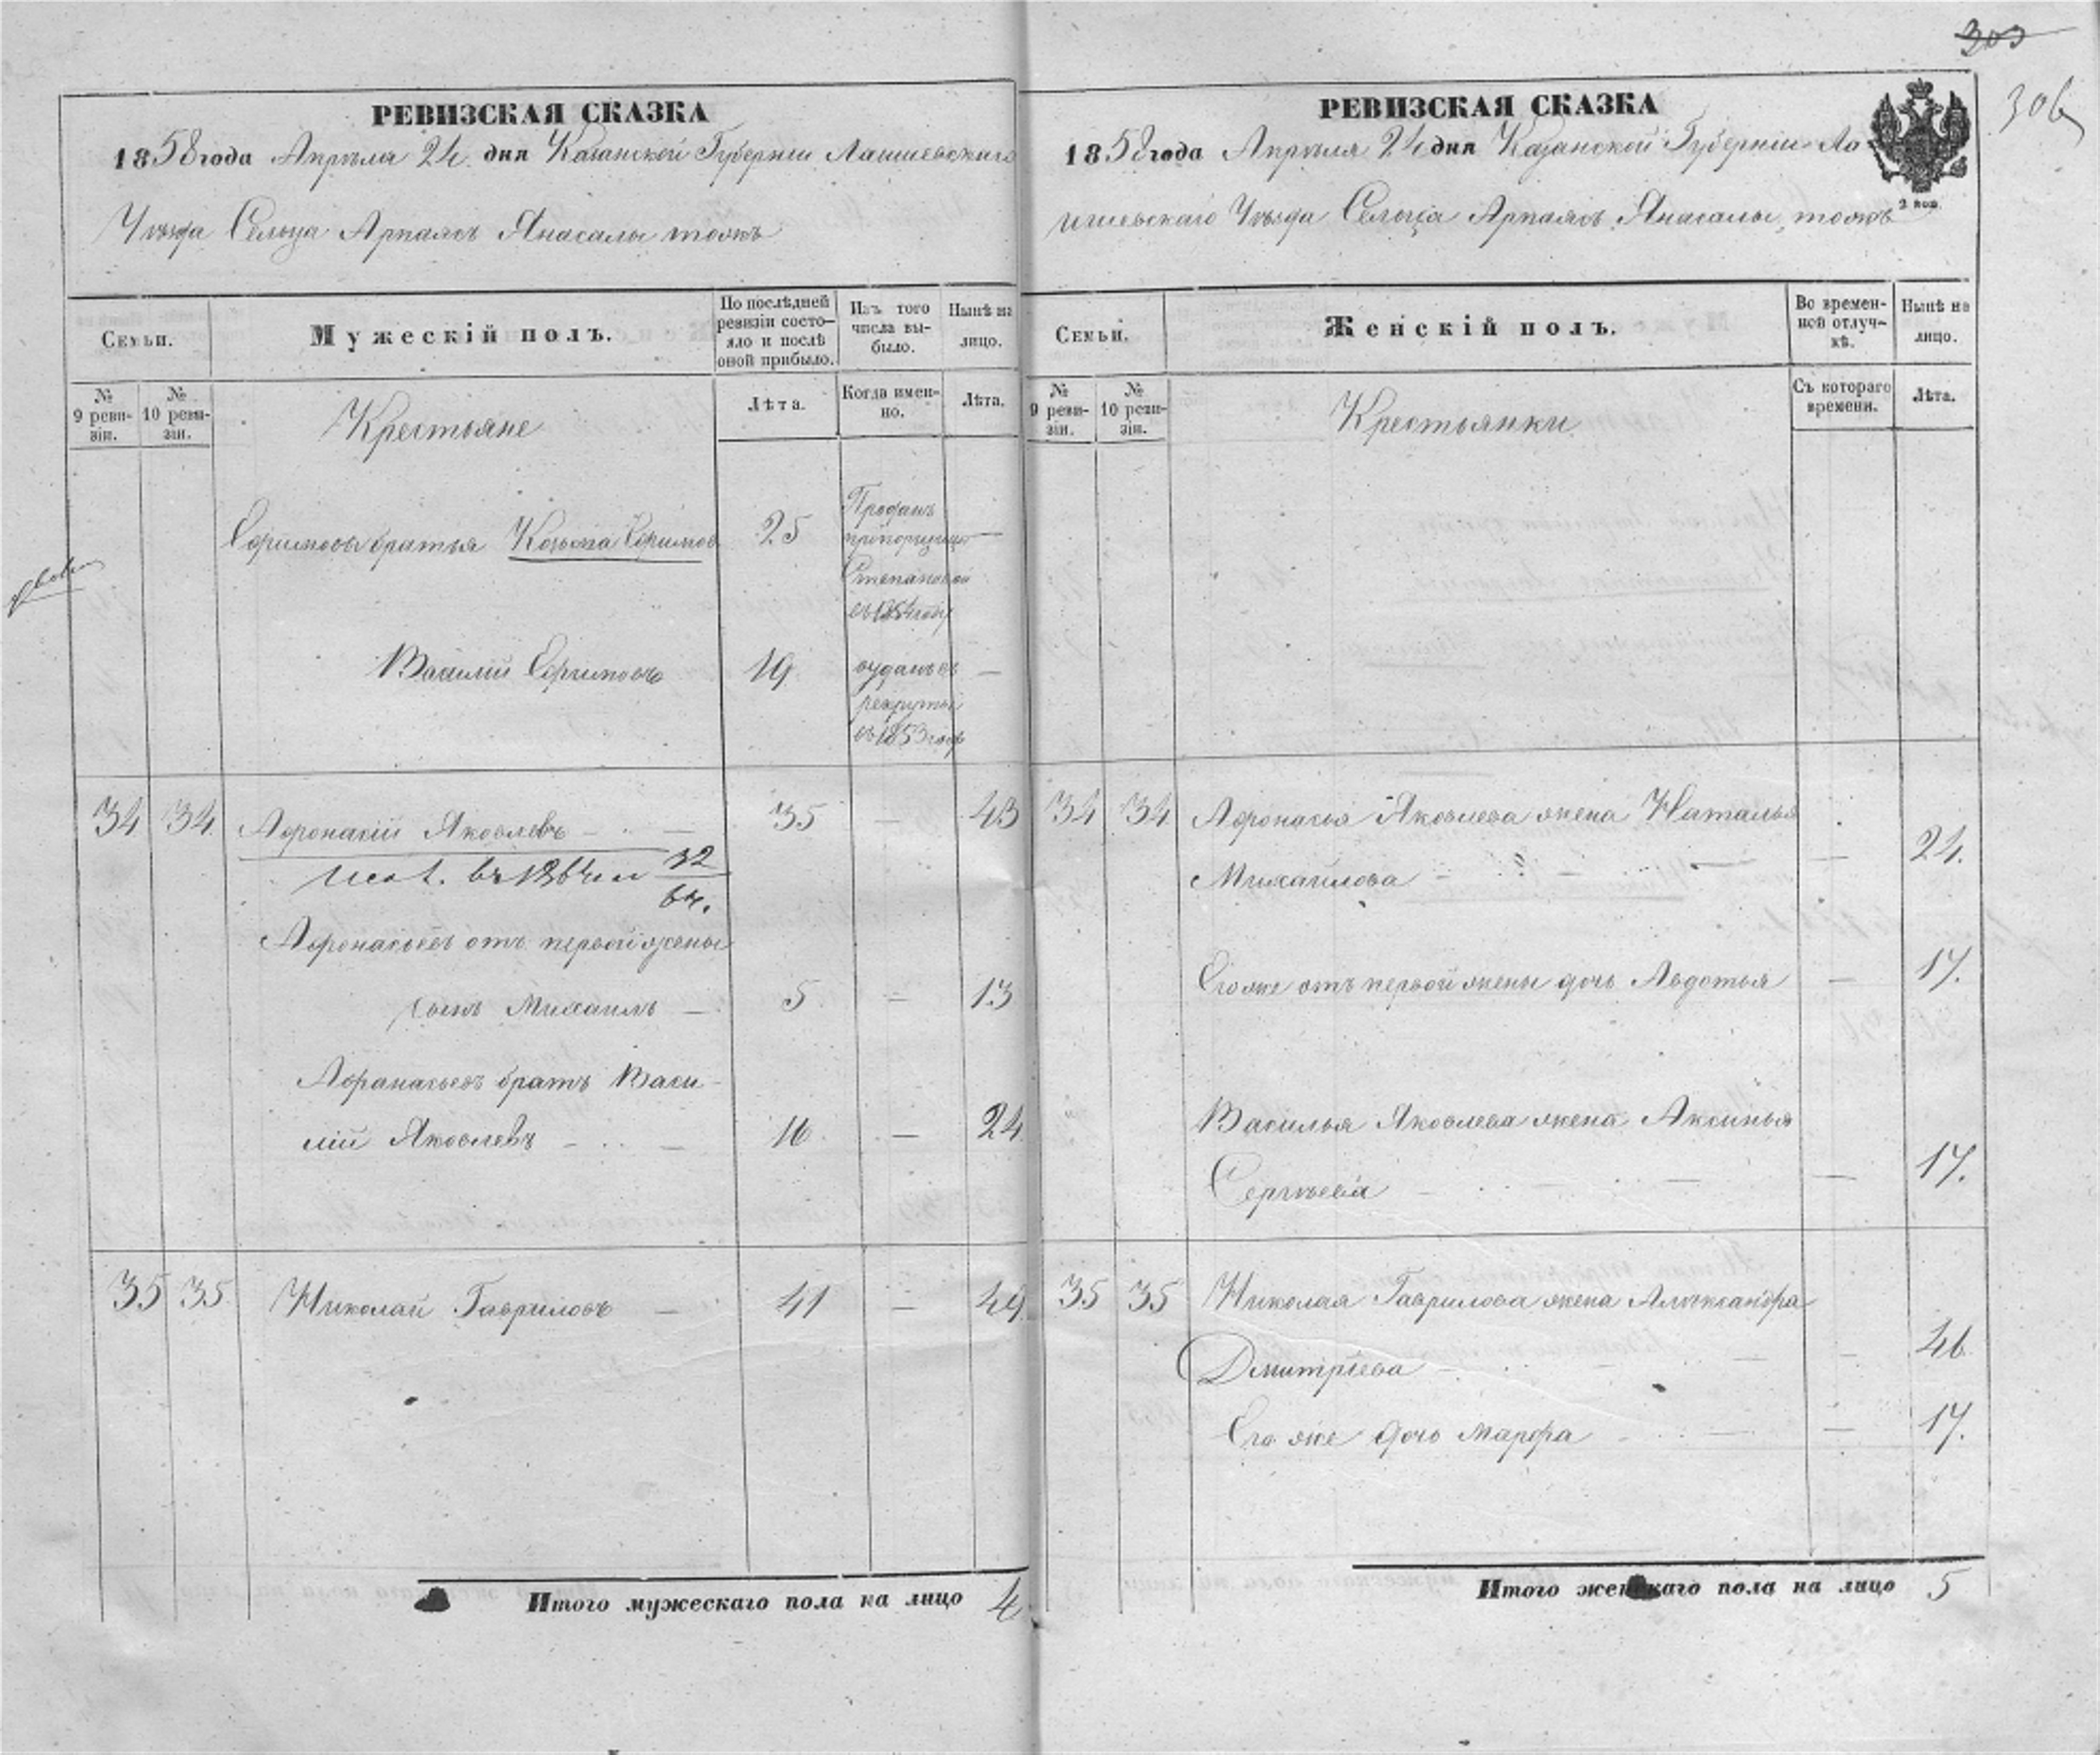 303
306
РЕВИЗСКАЯ СКАЗКА
1858 года Апрѣля 24 дня Казанской Губерніи Лаишевскаго
Уѣзда Сельца Арпаясъ Янасалы тожъ
Семьи.
Мужескій полъ.
По послѣдней
ревизіи состо-
яло и послѣ
оной прибыло.
Изъ того
числа вы-
было.
Нынѣ на
лицо.
№
9 реви-
зіи.
№
10 реви-
зіи.
Крестьяне
Лѣта.
Когда имен-
но.
Лѣта.
Ефимовы братья Козьма Ефимов 25
Проданъ
Степановой
въ 1854 году
—
Василій Ефимовъ 19
отданъ въ
рекруты
въ 1853 году
—
34 34 Афонасій Яковлевъ — 35 — 43
32
Афонасьевъ отъ первой жены
сынъ Михаилъ — 5 — 13
Афанасьевъ братъ Васи-
лій Яковлевъ — 16 — 24
35 35 Николай Гавриловъ — 41 — 49
Итого мужескаго пола на лицо 4
РЕВИЗСКАЯ СКАЗКА
1858 года Апрѣля 24 дня Казанской Губерніи Ла-
ишевскаго Уѣзда Сельца Арпаясъ Янасалы тожъ
2 коп.
Семьи.
Женскій полъ.
Во времен-
ной отлуч-
кѣ.
Нынѣ на
лицо.
№
9 реви-
зіи.
№
10 реви-
зіи.
Крестьянки
Съ котораго
времени.
Лѣта.
34 34 Афонасья Яковлева жена Наталья
Михайлова — 24.
Его же отъ первой жены дочь Авдотья — 17.
Василья Яковлева жена Аксинья
Сергѣева — 17.
35 35 Николая Гаврилова жена Александра
Дмитріева — 46
Его же дочь Марфа — 17.
Итого женскаго пола на лицо 5